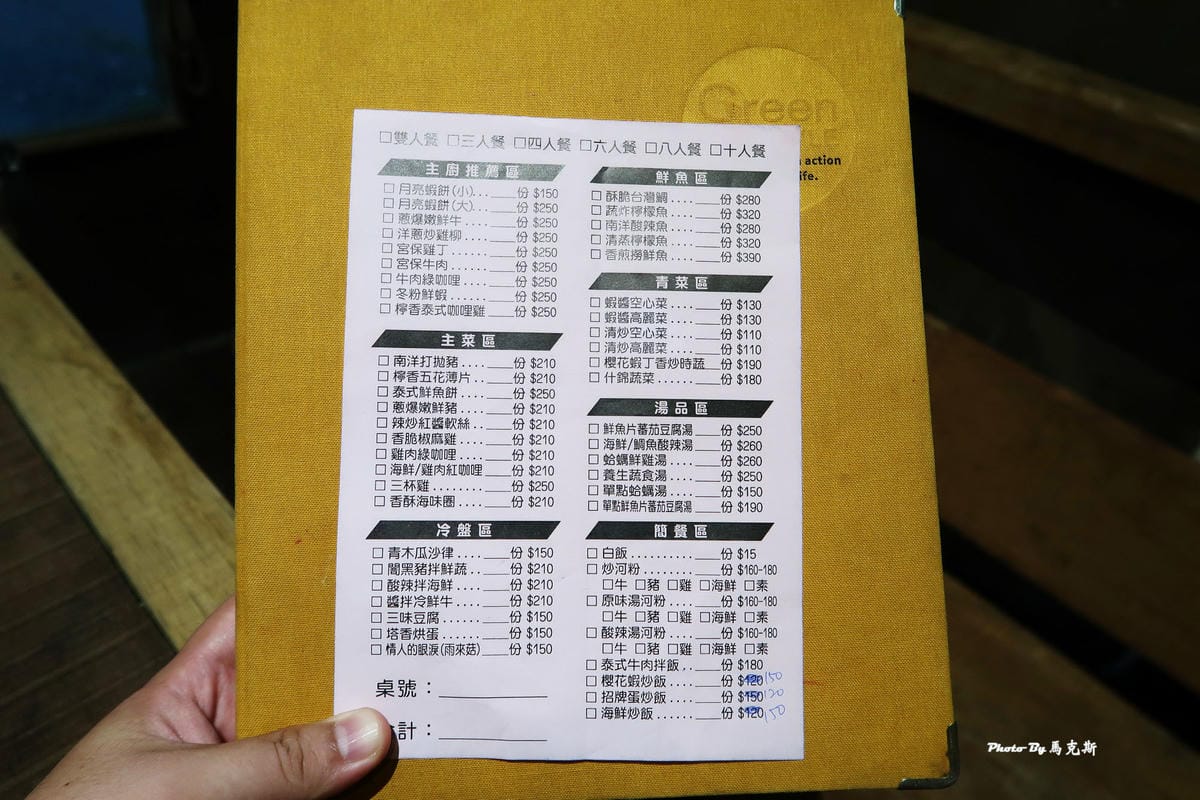 Green
action
life.
□雙人餐 □三人餐 □四人餐 □六人餐 □八人餐 □十人餐
主廚推薦區
□月亮蝦餅(小)...___份 $150
□月亮蝦餅(大)...___份 $250
□蔥爆嫩鮮牛....___份 $250
□洋蔥炒雞柳....___份 $250
□宮保雞丁......___份 $250
□宮保牛肉......___份 $250
□牛肉綠咖哩....___份 $250
□冬粉鮮蝦......___份 $250
□檸香泰式咖哩雞___份 $250
主菜區
□南洋打拋豬....___份 $210
□檸香五花薄片..___份 $210
□泰式鮮魚餅....___份 $250
□蔥爆嫩鮮豬....___份 $210
□辣炒紅醬軟絲..___份 $210
□香脆椒麻雞....___份 $210
□雞肉綠咖哩....___份 $210
□海鮮/雞肉紅咖哩___份 $210
□三杯雞........___份 $250
□香酥海味圈....___份 $210
冷盤區
□青木瓜沙律....___份 $150
□闇黑豬拌鮮蔬..___份 $210
□酸辣拌海鮮....___份 $210
□醬拌冷鮮牛....___份 $210
□三味豆腐......___份 $150
□塔香烘蛋......___份 $150
□情人的眼淚(雨來菇)___份 $150
桌號：__________
計：__________
鮮魚區
□酥脆台灣鯛....___份 $280
□蔬炸檸檬魚....___份 $320
□南洋酸辣魚....___份 $280
□清蒸檸檬魚....___份 $320
□香煎撈鮮魚....___份 $390
青菜區
□蝦醬空心菜....___份 $130
□蝦醬高麗菜....___份 $130
□清炒空心菜....___份 $110
□清炒高麗菜....___份 $110
□櫻花蝦丁香炒時蔬__份 $190
□什錦蔬菜......___份 $180
湯品區
□鮮魚片蕃茄豆腐湯___份 $250
□海鮮/鯛魚酸辣湯___份 $260
□蛤蠣鮮雞湯....___份 $260
□養生蔬食湯....___份 $250
□單點蛤蠣湯....___份 $150
□單點鮮魚片蕃茄豆腐湯___份 $190
簡餐區
□白飯..........___份 $15
□炒河粉........___份 $160-180
□牛 □豬 □雞 □海鮮 □素
□原味湯河粉....___份 $160-180
□牛 □豬 □雞 □海鮮 □素
□酸辣湯河粉....___份 $160-180
□牛 □豬 □雞 □海鮮 □素
□泰式牛肉拌飯..___份 $180
□櫻花蝦炒飯....___份 $120 150
□招牌蛋炒飯....___份 $150 120
□海鮮炒飯......___份 $120 150
Photo By 馬克斯